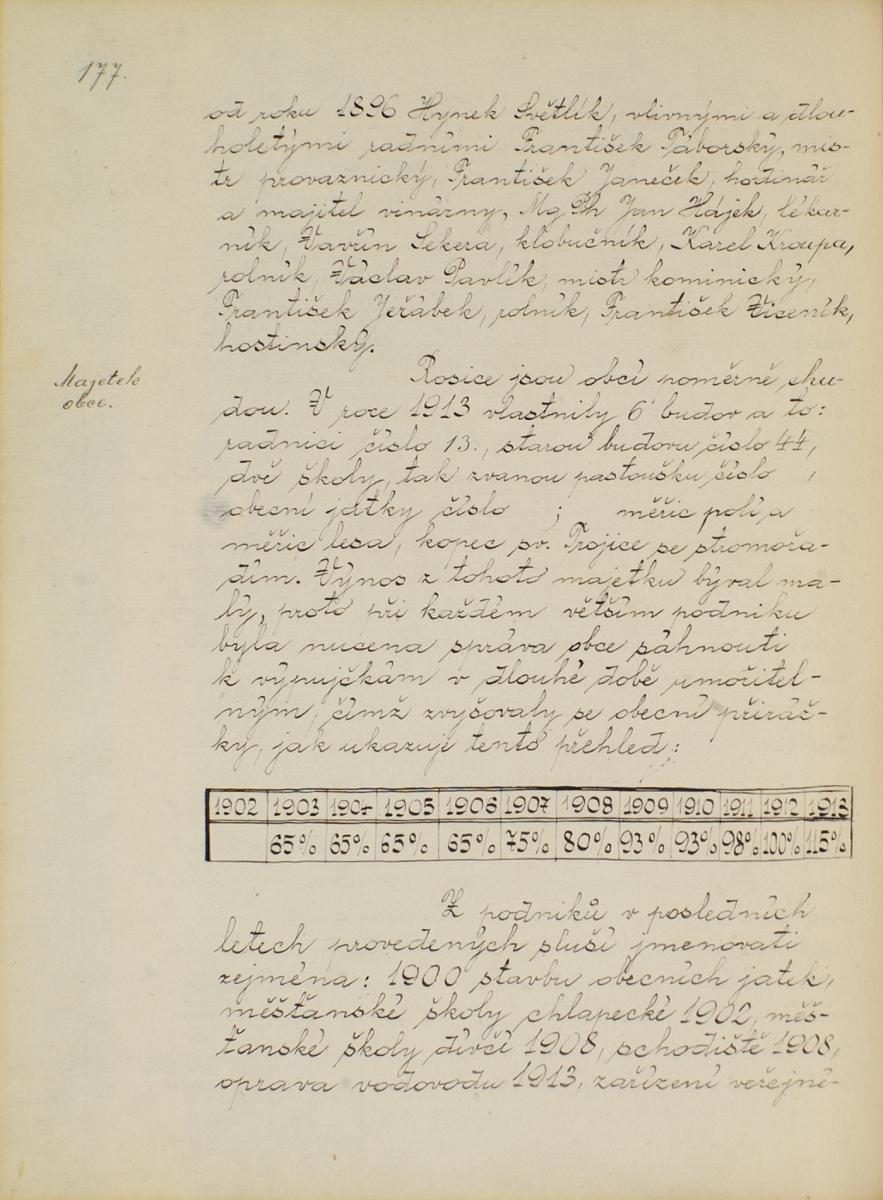 177.
od roku 1896 Hynek Světlík, vlivnými a dlou-
holetými radními František Táborský, mis-
tr provaznický, František Janeček, hodinář
a majitel vinárny, Mg Ph Jan Hájek, lékár-
ník, Vavřín Sekera, klobučník, Karel Kroupa,
rolník, Václav Pavlík, mistr kominický,
František Jeřábek, rolník, František Ziceník,
hostinský.
Majetek
obce.
Rosice jsou obcí poměrně chu-
dou. V roce 1913 vlastnily 6 budov a to:
radnici číslo 13., starou budovu číslo 44,
dvě školy, tak zvanou pastoušku číslo ,
obecní jatky číslo ; měřic polí a
měřic lesa, kopec sv. Trojice se stromořa-
dím. Výnos z tohoto majetku býval ma-
lý, proto při každém větším podniku
byla nucena správa obce sáhnouti
k výpujčkám v dlouhé době umořitel-
ným, čímž zvyšovaly se obecní přiráž-
ky, jak ukazuje tento přehled:
1902 1903 1904 1905 1906 1907 1908 1909 1910 1911 1912 1913
65% 65% 65% 65% 75% 80% 93% 93% 98% 100% 115%
Z podniků v posledních
letech provedených sluší jmenovati
zejména: 1900 stavbu obecních jatek,
měšťanské školy chlapecké 1902, měš-
ťanské školy dívčí 1908, schodiště 1908,
oprava vodovodu 1913, zařízení veřejné-